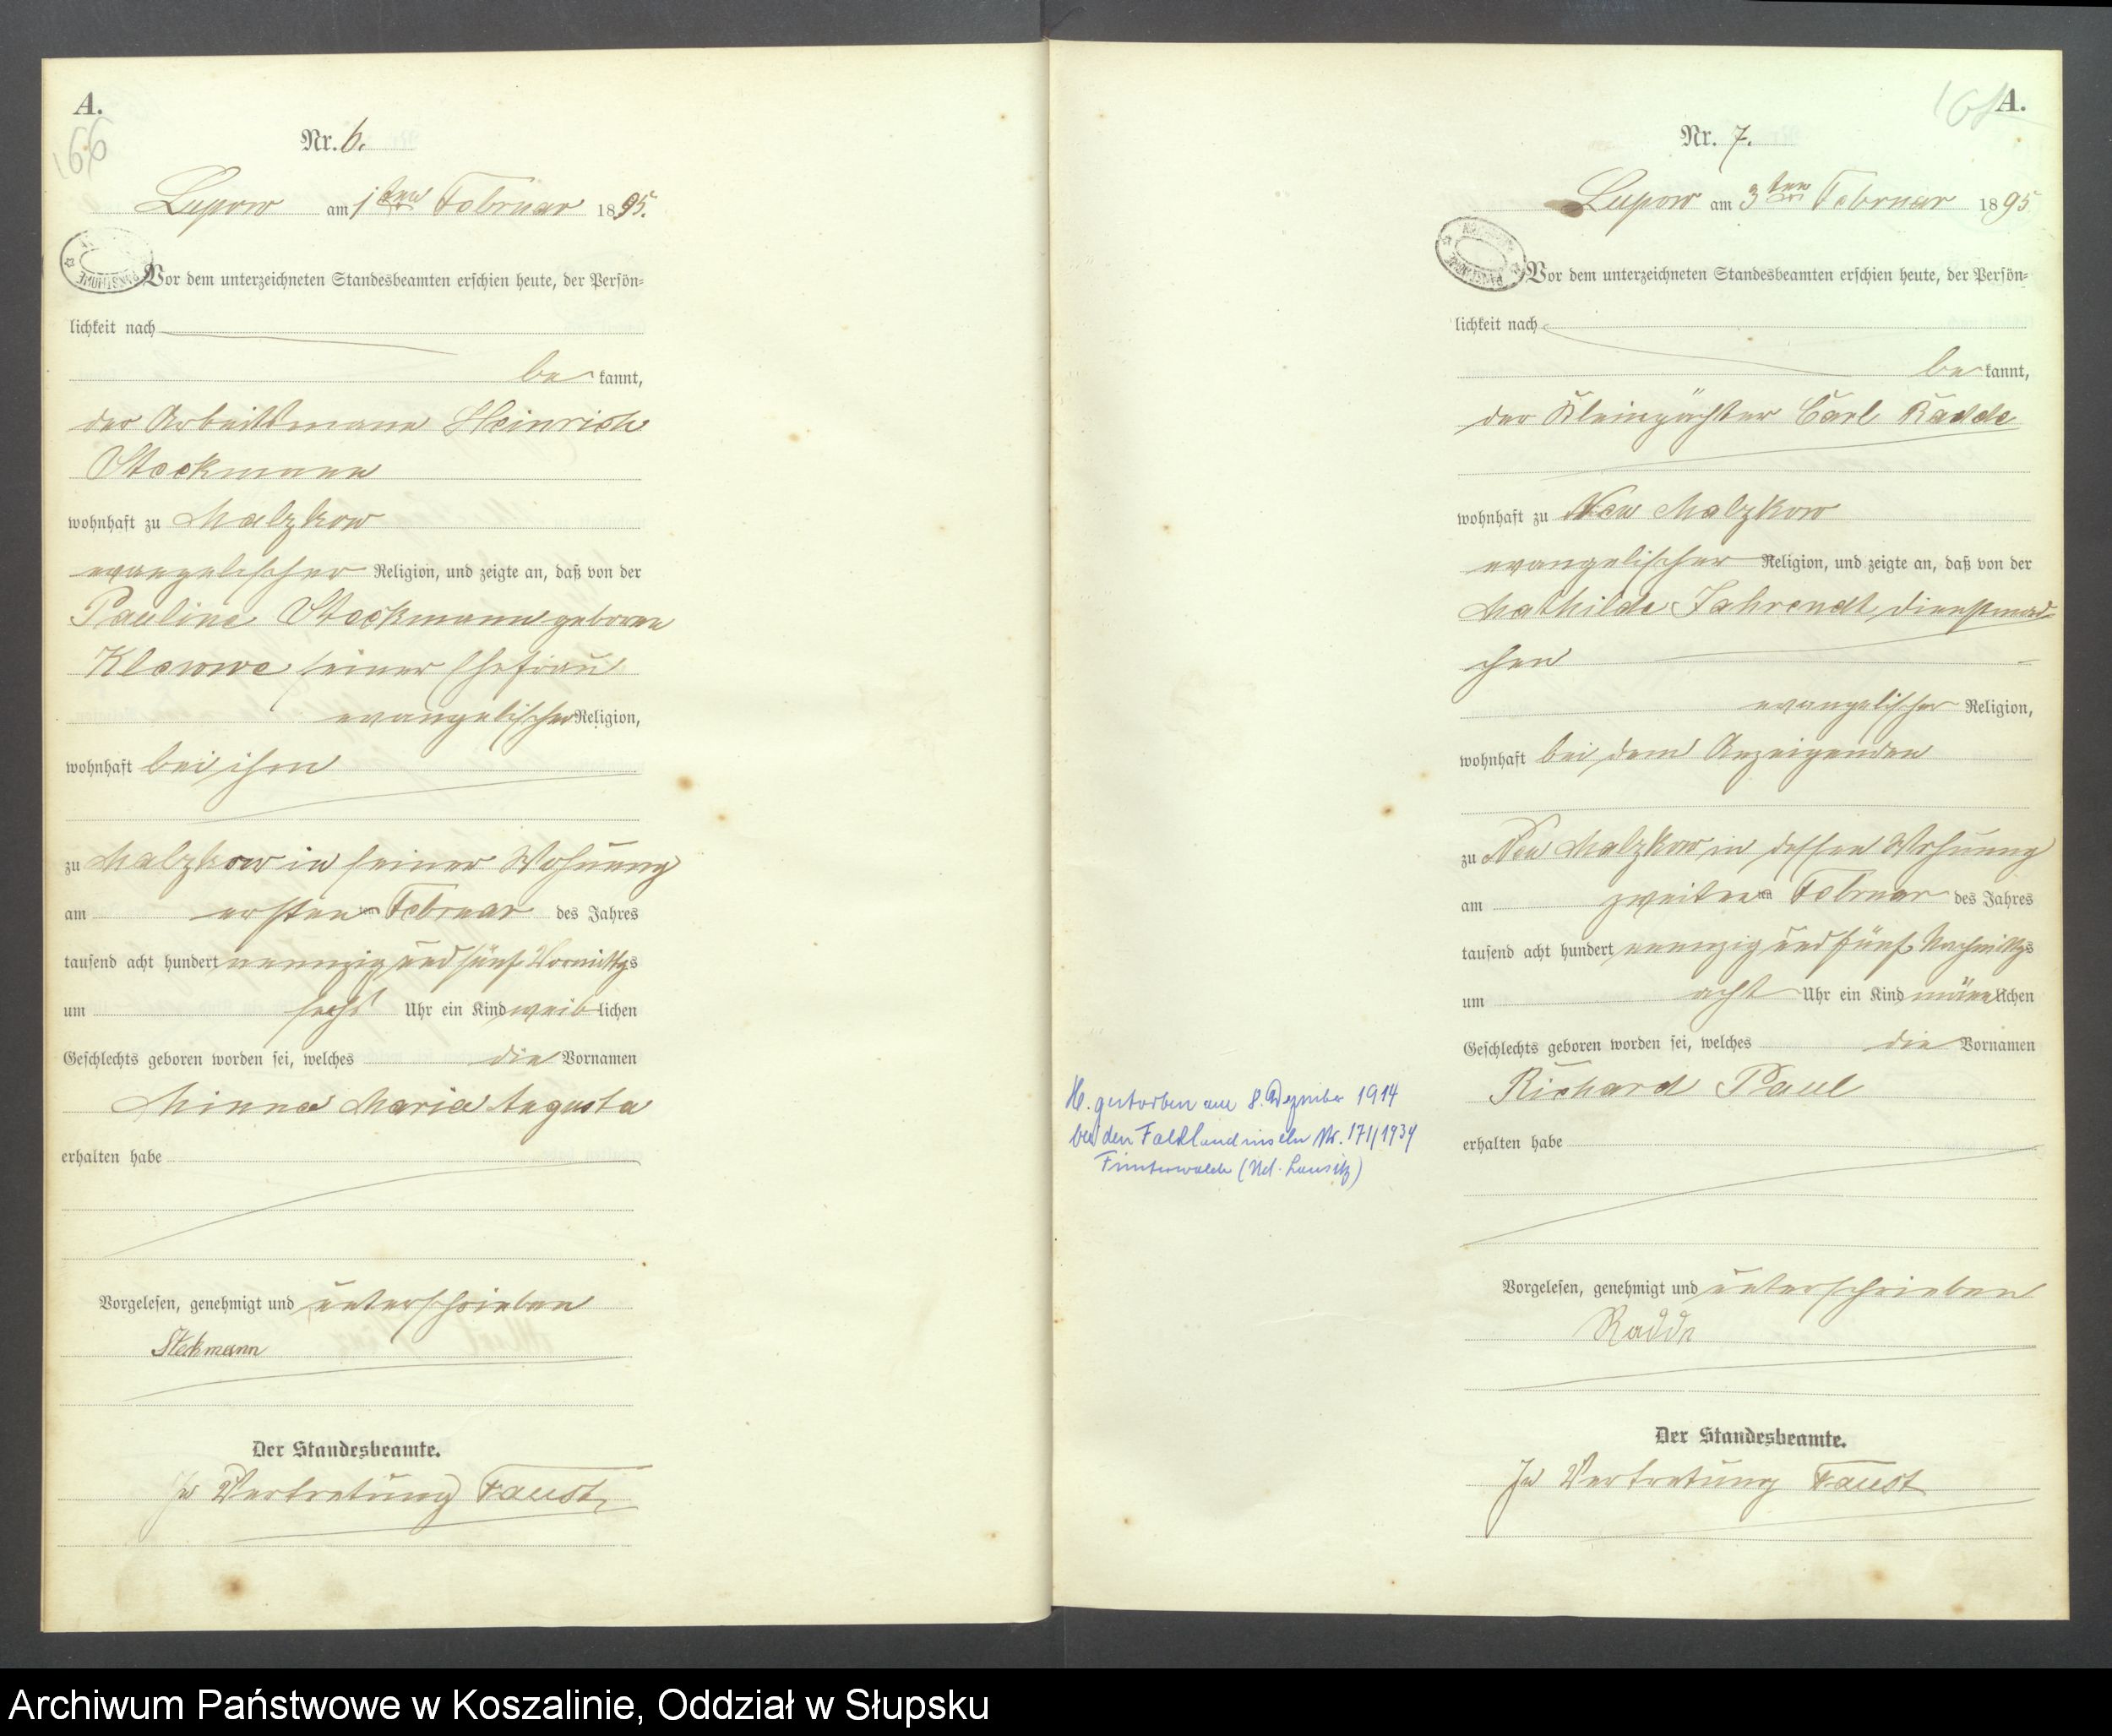 A.
166
Nr. 6.
Lupow am 1ten Februar 1895.
Vor dem unterzeichneten Standesbeamten erschien heute, der Persön=
lichkeit nach
be kannt,
der Arbeitsmann Heinrich
Steckmann
wohnhaft zu Malzkow
evangelischer Religion, und zeigte an, daß von der
Pauline Steckmann geborene
Klewwe seiner Ehefrau
evangelischer Religion,
wohnhaft bei ihm
zu Malzkow in seiner Wohnung
am ersten Februar des Jahres
tausend acht hundert neunzig und fünf Vormittags
um sechs Uhr ein Kind weiblichen
Geschlechts geboren worden sei, welches die Vornamen
Minna Maria Augusta
erhalten habe
Vorgelesen, genehmigt und unterschrieben
Steckmann
Der Standesbeamte.
In Vertretung Faust
A.
Nr. 7.
Lupow am 3ten Februar 1895
Vor dem unterzeichneten Standesbeamten erschien heute, der Persön=
lichkeit nach
be kannt,
der Kleinpächter Carl Radde
wohnhaft zu Neu Malzkow
evangelischer Religion, und zeigte an, daß von der
Mathilde Fahrendt, Dienstmäd=
chen
evangelischer Religion,
wohnhaft bei dem Anzeigenden
zu Neu Malzkow in dessen Wohnung
am zweiten Februar des Jahres
tausend acht hundert neunzig und fünf Nachmittags
um acht Uhr ein Kind männlichen
Geschlechts geboren worden sei, welches die Vornamen
Richard Paul
erhalten habe
H. gestorben am 8. Dezember 1914
bei den Falklandinseln Nr. 171/1934
Finsterwalde (Nd. Lausitz)
Vorgelesen, genehmigt und unterschrieben
Radde
Der Standesbeamte.
In Vertretung Faust
Archiwum Państwowe w Koszalinie, Oddział w Słupsku